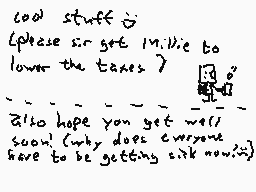 cool stuff :)
(please sir get Millie to
lower the taxes )
also hope you get well
soon! (why does everyone
have to be getting sick now!:()